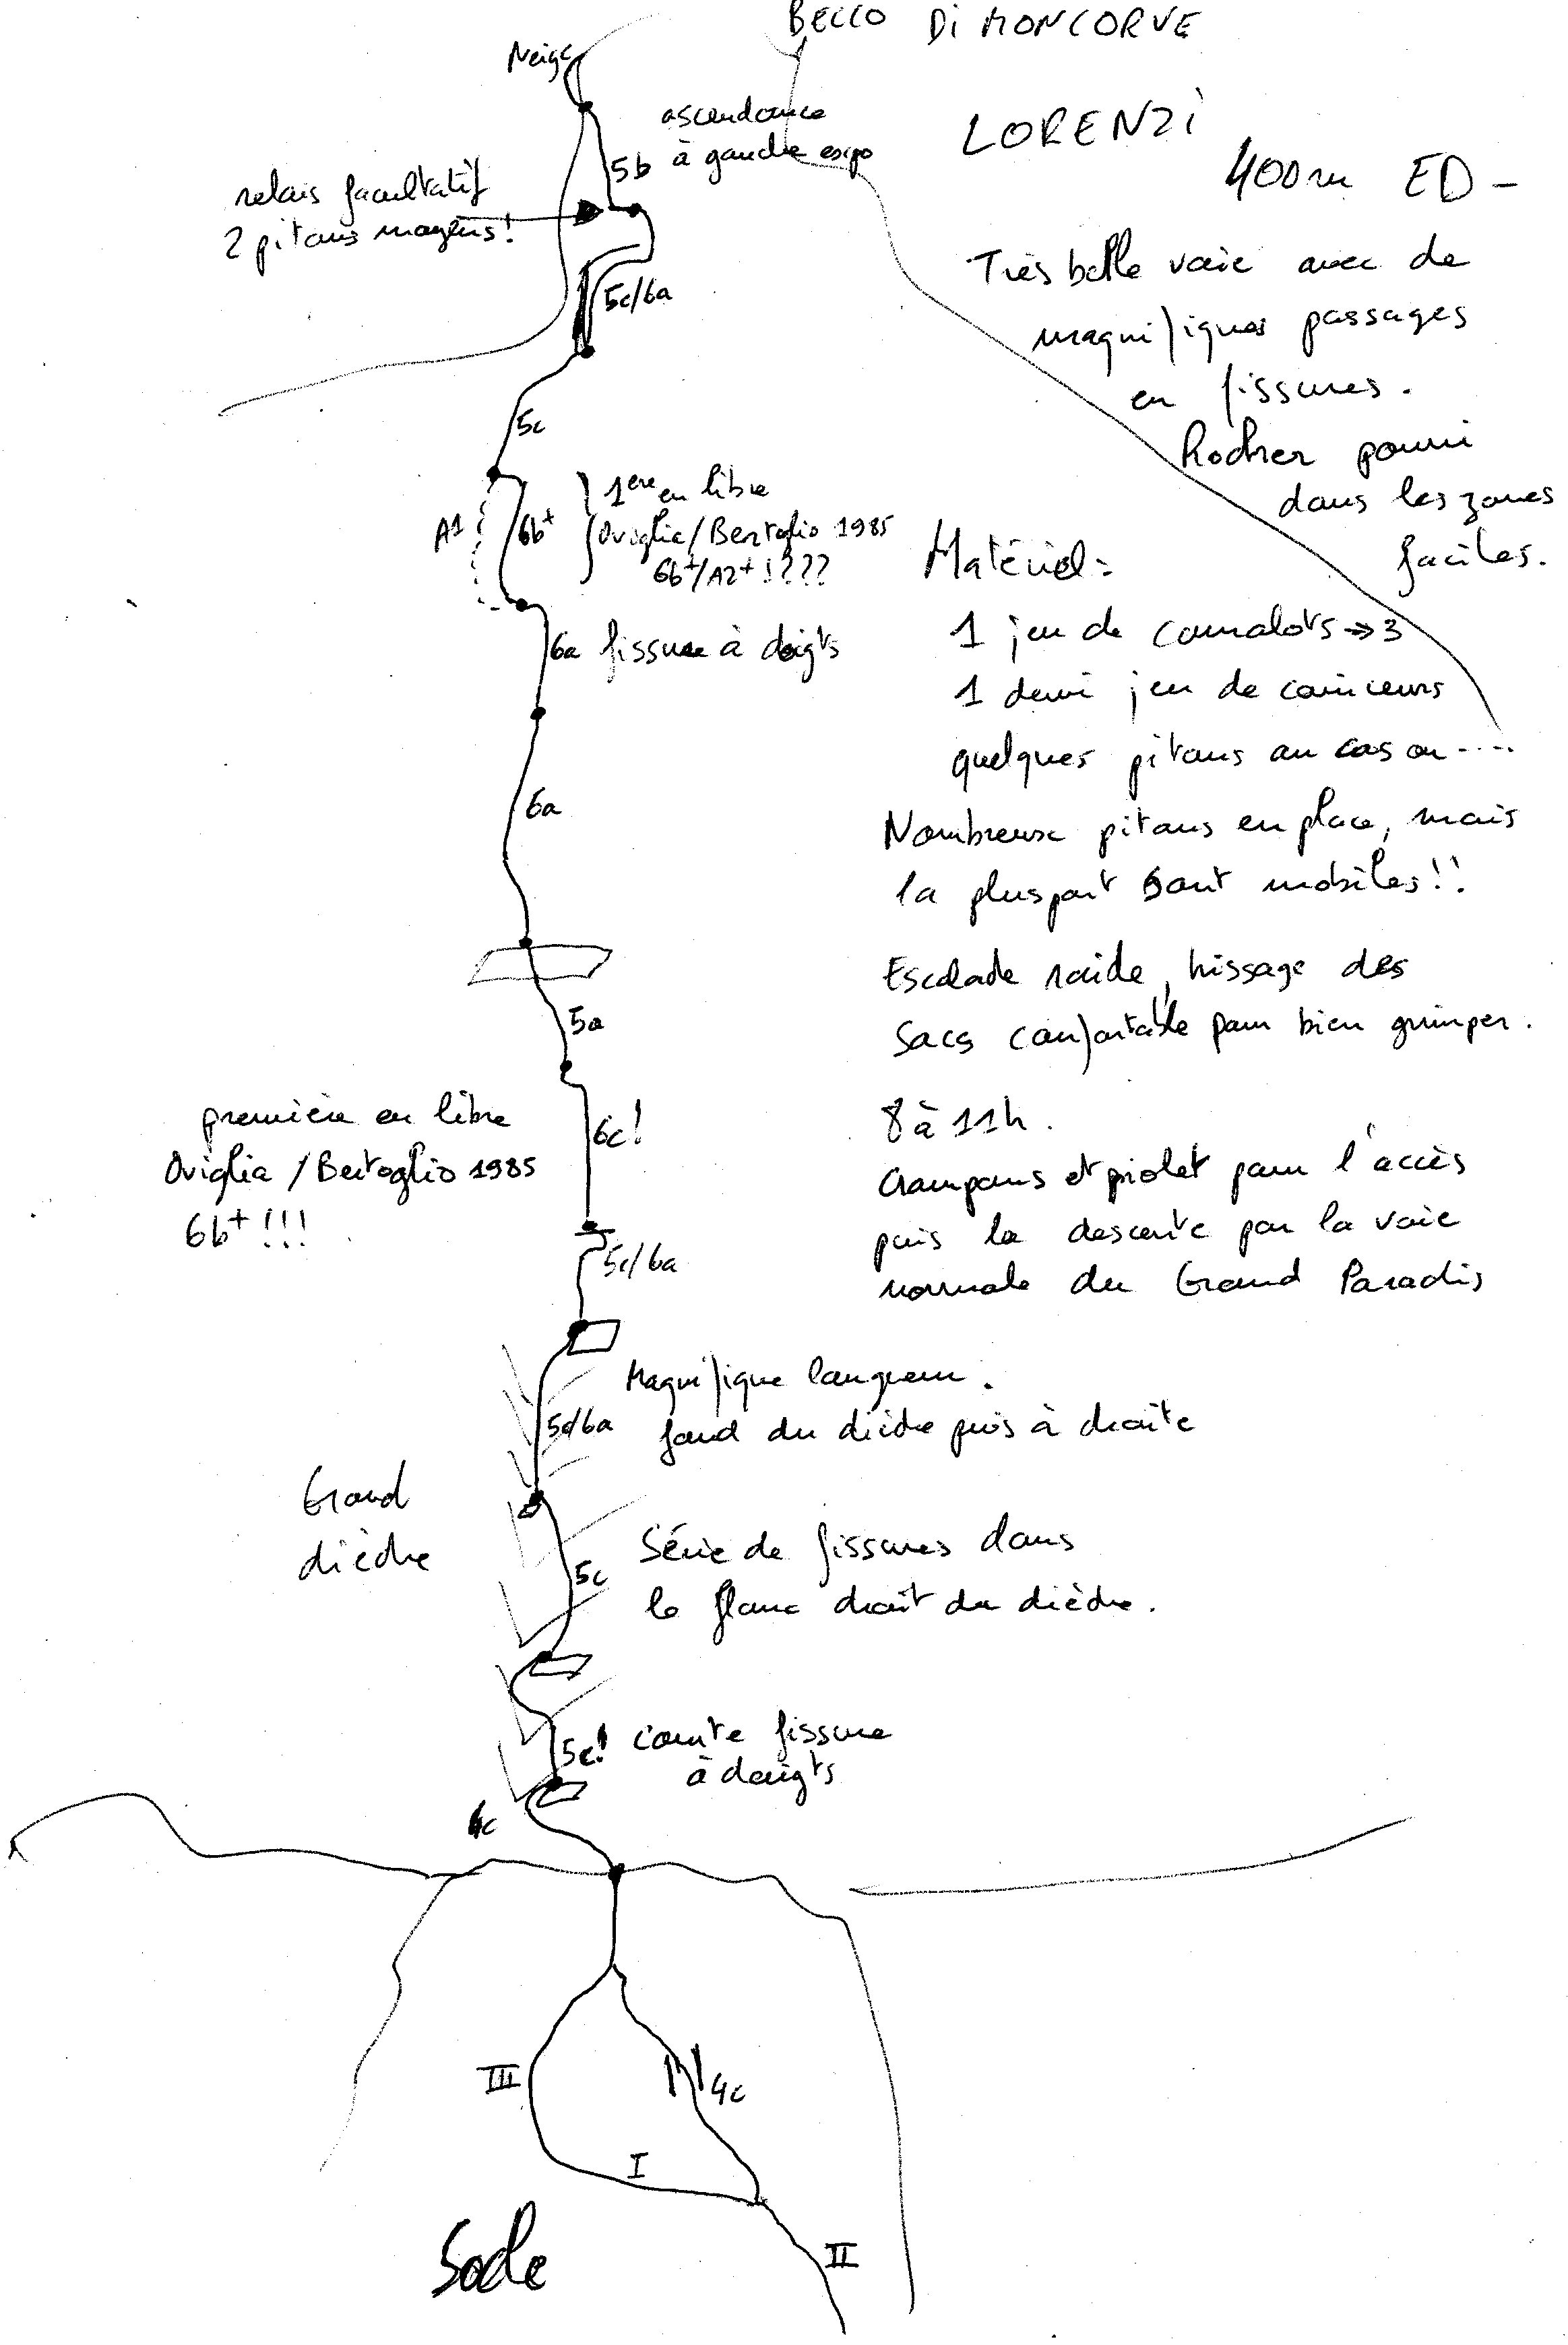 BECCO DI MONCORVE
LORENZI
400m ED-
Très belle voie avec de
magnifiques passages
en fissures.
Rocher pourri
dans les zones
faciles.
Matériel:
1 jeu de camalots → 3
1 demi jeu de coinceurs
quelques pitons au cas ou ....
Nombreux pitons en place, mais
la pluspart sont mobiles!!
Escalade raide, hissage des
sacs confortable pour bien grimper.
8 à 11h.
Crampons et piolet pour l'accès
puis la descente par la voie
normale du Grand Paradis
Neige
ascendance
à gauche expo
5b
relais facultatif
2 pitons moyens!
5c/6a
5c
A1
6b+
1ere en libre
Oviglia/Bertoglio 1985
6b+/A2+!???
6a fissure à doigts
6a
5a
6c!
première en libre
Oviglia/Bertoglio 1985
6b+!!!
5c/6a
Magnifique longueur.
5c/6a
fond du dièdre puis à droite
Grand
dièdre
Série de fissures dans
5c
le flanc droit du dièdre.
5c! courte fissure
à doigts
4c
III
4c
I
Socle
II